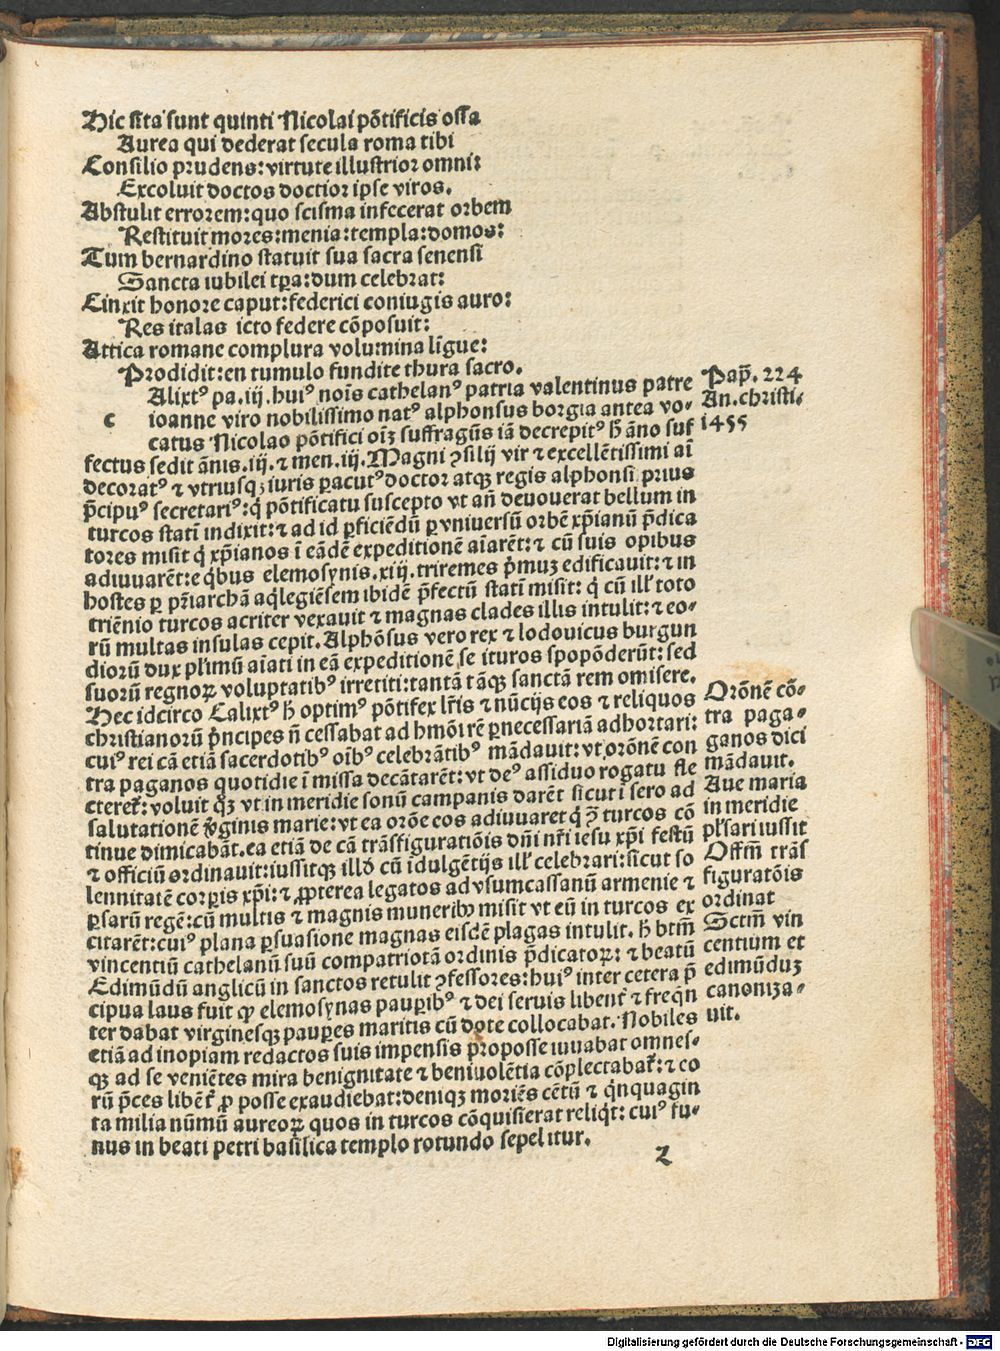 Hic sita sunt quinti Nicolai põtificis ossa
Aurea qui dederat secula roma tibi
Consilio prudens: virtute illustrior omni:
Excoluit doctos doctior ipse viros.
Abstulit errorem: quo scisma infecerat orbem
Restituit mores: menia: templa: domos:
Tum bernardino statuit sua sacra senensi
Sancta iubilei tꝑa: dum celebrat:
Cinxit honore caput: federici coniugis auro:
Res italas icto federe cõposuit:
Attica romane complura volumina lĩgue:
Prodidit: en tumulo fundite thura sacro.
Alixtꝰ pa. iij. huiꝰ noĩs cathelanꝰ patria valentinus patre
c ioanne viro nobilissimo natꝰ alphonsus borgia antea vo-
catus Nicolao põtifici oĩʒ suffragijs iã decrepitꝰ h̃ ãno suf
fectus sedit ãnis. iij. ⁊ men. iij. Magni ꝯsilij vir ⁊ excellẽtissimi aĩ
decoratꝰ ⁊ vtriusqꝫ iuris ꝑacutꝰ doctor atqꝫ regis alphonsi prius
p̃cipuꝰ secretariꝰ: q̇ põtificatu suscepto vt añ deuouerat bellum in
turcos statĩ indixit: ⁊ ad id ꝑficiẽdũ ꝑ vniuersũ orbẽ xp̃ianũ p̃dica
tores misit q̇ xp̃ianos ĩ eãdẽ expeditionẽ aĩarẽt: ⁊ cũ suis opibus
adiuuarẽt: e q̇bus elemosynis. xiij. triremes p̃muʒ edificauit: ⁊ in
hostes ꝑ pr̃iarchã aq̇legiẽsem ibidẽ p̃fectũ statĩ misit: q̇ cũ ill̛ toto
triẽnio turcos acriter vexauit ⁊ magnas clades illis intulit: ⁊ eo-
rũ multas insulas cepit. Alphõsus vero rex ⁊ lodouicus burgun
diorũ dux pl̛imũ aĩati in eã expeditionẽ se ituros spopõderũt: sed
suorũ regnoꝝ voluptatibꝰ irretiti: tantã tãqꝫ sanctã rem omisere.
Hec idcirco Calixtꝰ h̃ optimꝰ põtifex lr̃is ⁊ nũcijs eos ⁊ reliquos
christianorũ p̃ncipes ñ cessabat ad hmõi rẽ ꝑnecessariã adhortari:
cuiꝰ rei cã etiã sacerdotibꝰ oĩbꝰ celebrãtibꝰ mãdauit: vt orõnẽ con
tra paganos quotidie ĩ missa decãtarẽt: vt deꝰ assiduo rogatu fle
cteret̃: voluit qꝫ vt in meridie sonũ campanis darẽt sicut i sero ad
salutationẽ ꝟginis marie: vt ea orõe eos adiuuaret q̇ ꝯ turcos cõ
tinue dimicabãt. ea etiã de cã trãsfiguratiõis dñi nr̃i iesu xp̃i festũ
⁊ officiũ ordinauit: iussitqꝫ illď cũ idulgẽtijs ill̛ celebrari: sicut so
lennitatẽ corꝑis xp̃i: ⁊ ꝓpterea legatos ad vsumcassanũ armenie ⁊
ꝑsarũ regẽ: cũ multis ⁊ magnis muneribꝫ misit vt eũ in turcos ex
citarẽt: cuiꝰ plana ꝑsuasione magnas eisdẽ plagas intulit. h̃ btm̃
vincentiũ cathelanũ suũ compatriotã ordinis p̃dicatoꝝ: ⁊ beatũ
Edimũdũ anglicũ in sanctos retulit ꝯfessores: huiꝰ inter cetera p̃
cipua laus fuit ꝙ elemosynas pauꝑibꝰ ⁊ dei seruis libent̃ ⁊ freq̃n
ter dabat virginesqꝫ pauꝑes maritis cũ dote collocabat. Nobiles
etiã ad inopiam redactos suis impensis pro posse iuuabat omnes-
qꝫ ad se veniẽtes mira benignitate ⁊ beniuolẽtia cõplectabat̃: ⁊ eo
rũ p̃ces libẽt̃ ꝓ posse exaudiebat: deniqꝫ moriẽs cẽtũ ⁊ q̇nquagin
ta milia nũmũ aureoꝝ quos in turcos cõquisierat reliq̇t: cuiꝰ fu-
nus in beati petri basilica templo rotundo sepelitur.
2
Pap̃. 224
An. christi-
1455
Orõnẽ cõ-
tra paga-
ganos dici
mãdauit.
Aue maria
in meridie
pl̛sari iussit
Offm̃ trãs
figuratõis
ordinat
Sctm̃ vin
centium et
edimũduʒ
canoniza-
uit.
Digitalisierung gefördert durch die Deutsche Forschungsgemeinschaft - DFG